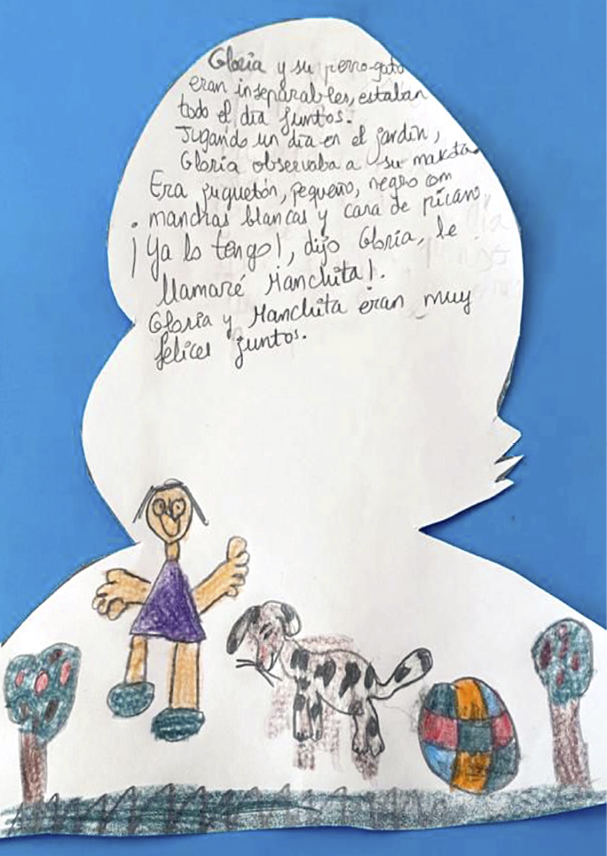 Gloria y su perro-gato
eran inseparables, estaban
todo el día juntos.
Jugando un día en el jardín,
Gloria observaba a su mascota.
Era juguetón, pequeño, negro con
manchas blancas y cara de pícaro.
¡Ya lo tengo!, dijo Gloria, le
llamaré Manchita!.
Gloria y Manchita eran muy
felices juntos.